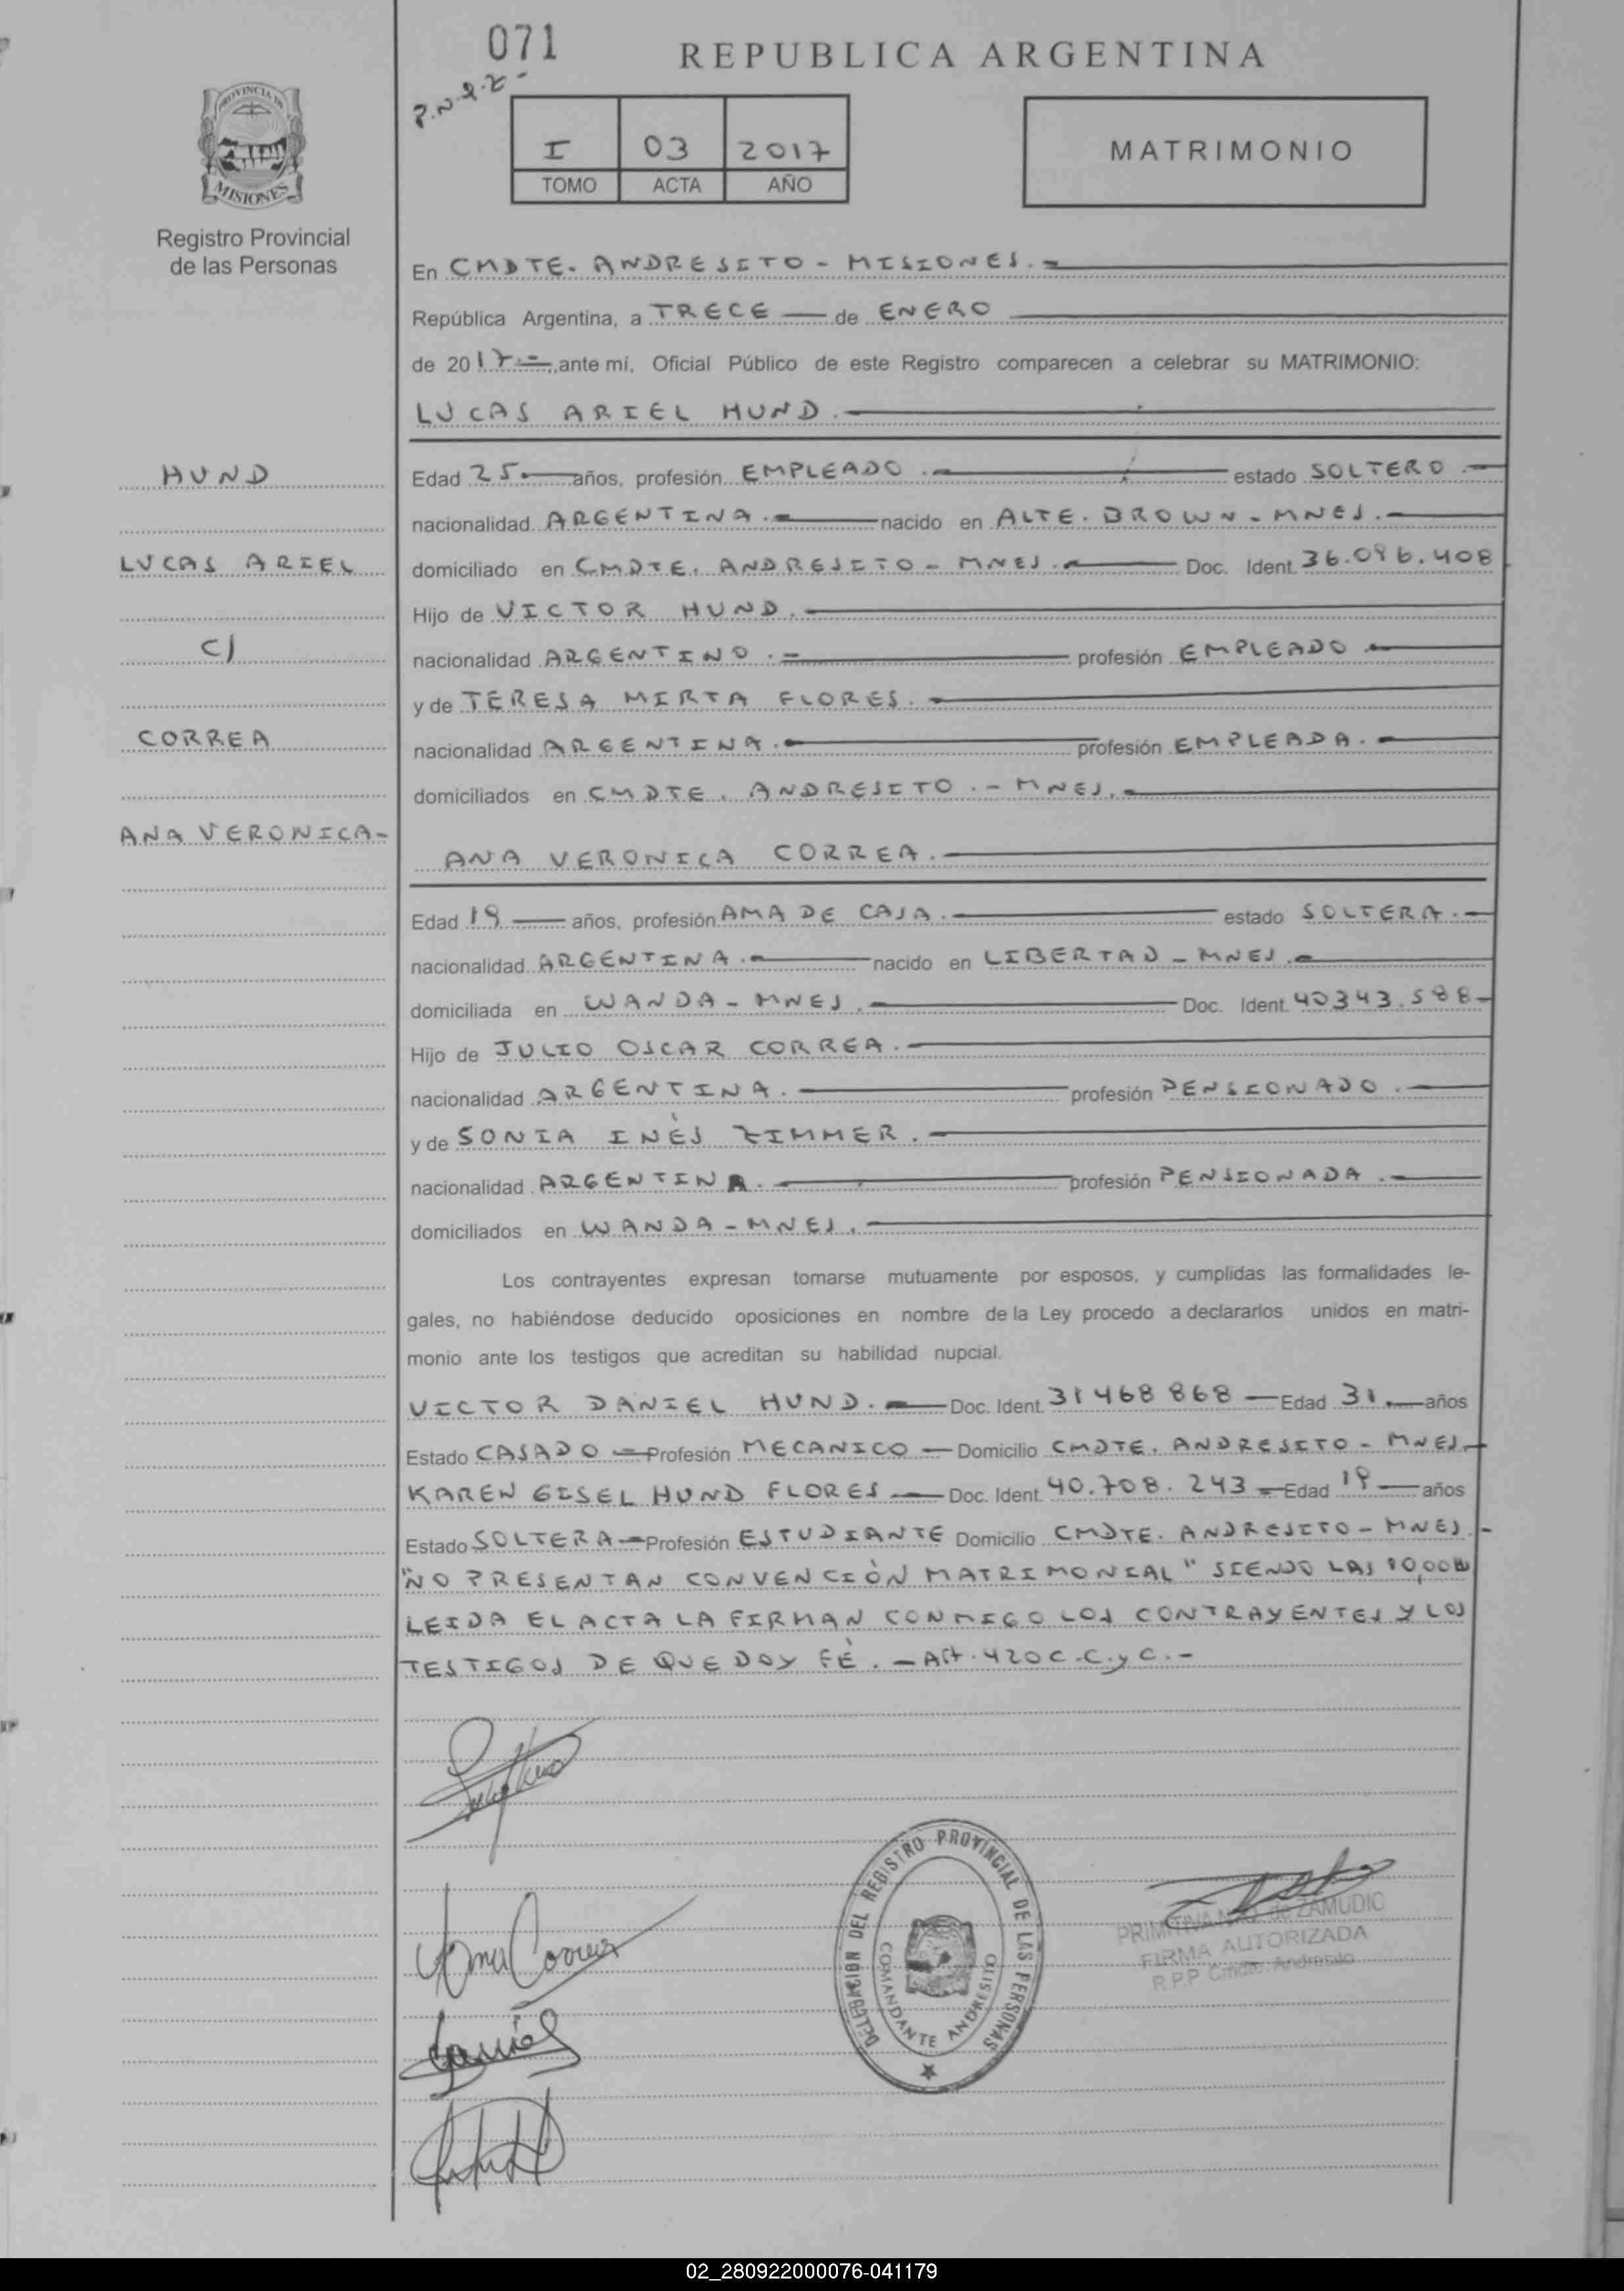 071
REPUBLICA ARGENTINA
PROVINCIA DE
MISIONES
I 03 2017
TOMO ACTA AÑO
MATRIMONIO
Registro Provincial
de las Personas
En CMDTE. ANDRESITO - MISIONES.-
República Argentina, a TRECE de ENERO
de 2017.- ,ante mí, Oficial Público de este Registro comparecen a celebrar su MATRIMONIO:
LUCAS ARIEL HUND.
HUND
Edad 25 años, profesión EMPLEADO. estado SOLTERO.
nacionalidad ARGENTINA. nacido en ALTE. BROWN - MNES.
LUCAS ARIEL
domiciliado en CMDTE. ANDRESITO - MNES. Doc. Ident. 36.096.408
Hijo de VICTOR HUND.
C/
nacionalidad ARGENTINO.- profesión EMPLEADO
y de TERESA MIRTA FLORES.
CORREA
nacionalidad ARGENTINA. profesión EMPLEADA.
domiciliados en CMDTE. ANDRESITO.- MNES.
ANA VERONICA-
ANA VERONICA CORREA.
Edad 19 años, profesión AMA DE CASA. estado SOLTERA.
nacionalidad ARGENTINA. nacido en LIBERTAD - MNES.
domiciliada en WANDA - MNES. Doc. Ident. 40343.588-
Hijo de JULIO OSCAR CORREA.
nacionalidad ARGENTINA. profesión PENSIONADO.
y de SONIA INÉS ZIMMER.
nacionalidad ARGENTINA. profesión PENSIONADA.
domiciliados en WANDA - MNES.
Los contrayentes expresan tomarse mutuamente por esposos, y cumplidas las formalidades le-
gales, no habiéndose deducido oposiciones en nombre de la Ley procedo a declararlos unidos en matri-
monio ante los testigos que acreditan su habilidad nupcial.
VICTOR DANIEL HUND. Doc. Ident. 31468868 Edad 31. años
Estado CASADO Profesión MECANICO Domicilio CMDTE. ANDRESITO - MNES.
KAREN GISEL HUND FLORES Doc. Ident. 40.708.243 Edad 19 años
Estado SOLTERA Profesión ESTUDIANTE Domicilio CMDTE. ANDRESITO - MNES.-
"NO PRESENTAN CONVENCIÓN MATRIMONIAL" SIENDO LAS
LEIDA EL ACTA LA FIRMAN CONMIGO LOS CONTRAYENTES Y LOS
TESTIGOS DE QUE DOY FÉ.- Art. 420 C.C. y C.-
Ana Correa
DELEGACION DEL REGISTRO PROVINCIAL DE LAS PERSONAS
COMANDANTE ANDRESITO
PRIMITIVA de ZAMUDIO
FIRMA AUTORIZADA
R.P.P. Cmdte. Andresito
02_280922000076-041179